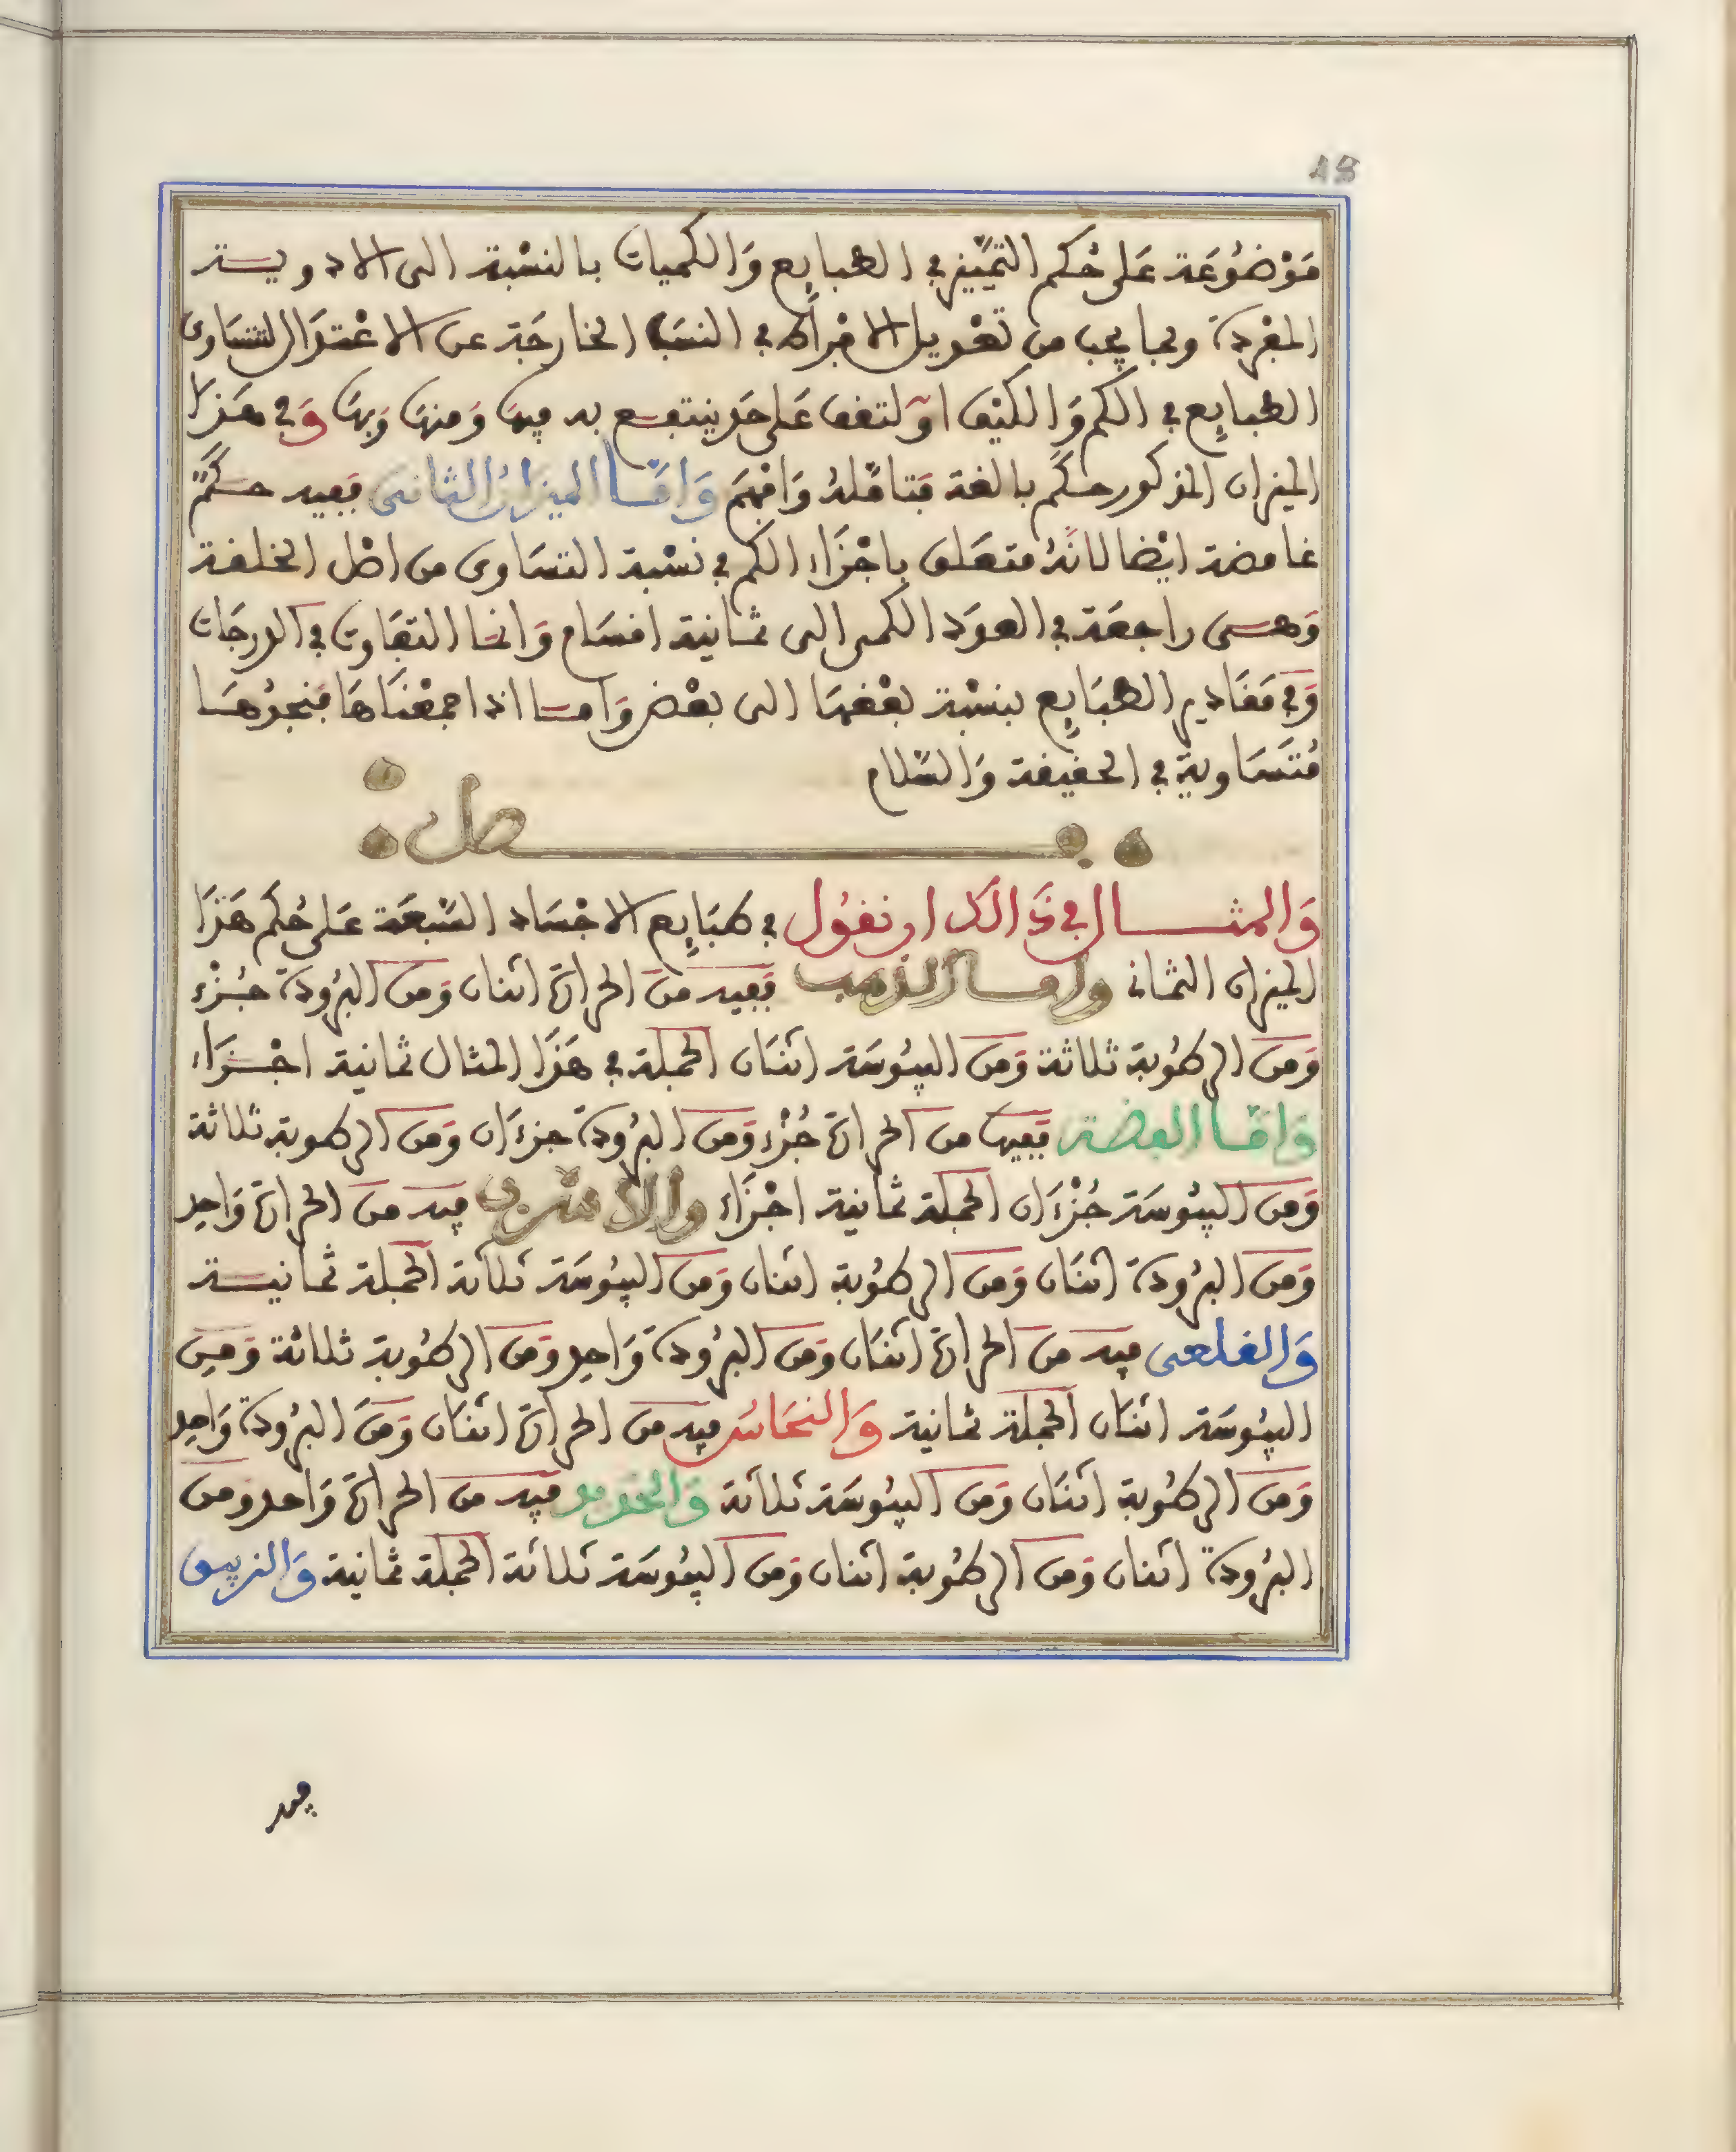 18
مَوْضُوعَة عَلى حُكم التمَييز في الطبايع وَالكميات بالنسْبة الى الادوية
المفردة وبما يجب من تعْديل الامْراط في النسَب الخارجَة عن الاعْتدَال لتسَاوى
الطبايع في الكم وَالكيْف اوْ لتقف عَلى حَد ينتفع به فيهَا وَمنهَا وَبهَا وَفي هَذا
الميزان المذكور حكَم بالغة فتامّلهُ وَافهَم وَامَّا الميزانُ الثانى ففيه حكَمٌ
غامضة ايْضا لانهُ متعَلق باجْزاء الكم في نسْبة التسَاوى من اصْل الخلقة
وَهى راجعَة في العدَد الكمى الى ثمانية اقسَام وَانمَا التفَاوت في الدرجَات
وَفي مَقَادير الطبَايع بنسْبة بعْضهَا الى بعْض وَامَا اذا جمعْنَاهَا فنجدُهَا
مُتسَاويةً في الحقيقة وَالسّلام
فصل
وَالمثال في ذَالكَ ان نقُول في طبَايع الاجْسَاد السّبعَة عَلى حُكم هَذَا
الميزان الثمانى وامَا الذهب ففيه منَ الحرارَة اثنان وَمنَ البرُودَة جُزْء
وَمنَ الرطُوبة ثلاثة وَمنَ اليبُوسَة اثنَان الجملة في هَذَا المثال ثمانية اجْزَاء
وَامَّا الفضة ففيهَا من الحرارَة جُزْء وَمنَ البرُودَة جزءَان وَمنَ الرطوبة ثلاثة
وَمنَ اليبُوسَة جُزْءَان الجملة ثمانية اجْزَاء والاسْرب فيه منَ الحرارَة وَاحِد
وَمنَ البرُودَة اثنَان وَمنَ الرطُوبة اثنان وَمنَ اليبُوسَة ثلاثة الجملة ثمانية
وَالقلعى فيه منَ الحرارَة اثنَان وَمنَ البرُودَة وَاحِد وَمنَ الرطُوبة ثلاثة وَمِنَ
اليبُوسَة اثنَان الجملة ثمانية وَالنحَاسُ فيه منَ الحرارَة اثنَان وَمنَ البرُودَة وَاحِد
وَمنَ الرطُوبة اثنَان وَمنَ اليبُوسَة ثلاثة وَالحديد فيه منَ الحرارَة وَاحد ومنَ
البرُودَة اثنان وَمنَ الرطُوبة اثنان وَمنَ اليبُوسَة ثلاثة الجملة ثمانية وَالزيبق
فيه